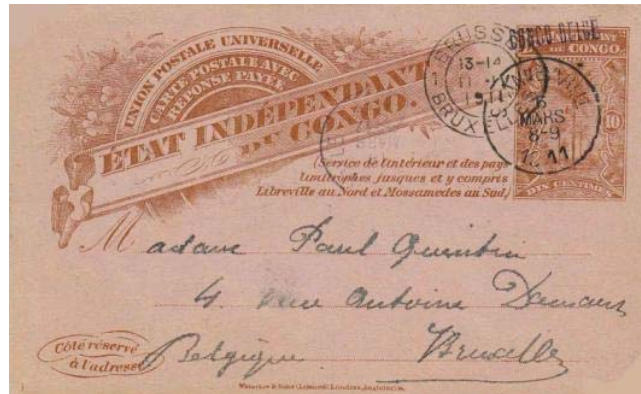 UNION POSTALE UNIVERSELLE
CARTE POSTALE AVEC
RÉPONSE PAYÉE
ÉTAT INDÉPENDANT
DU CONGO.
(Service de l'intérieur et des pays
limitrophes jusques et y compris
Libreville au Nord et Mossamedes au Sud)
CONGO BELGE
DU CONGO
10
DIX CENTIMES
BRUSSEL
13-14
1911
BRUXELLES
6
MARS
8-9
11
Madame Paul Quentin
4. Rue Antoine
Belgique Bruxelles
Côté réservé
à l'adresse
Waterlow & Sons Limited, Londres, Angleterre.